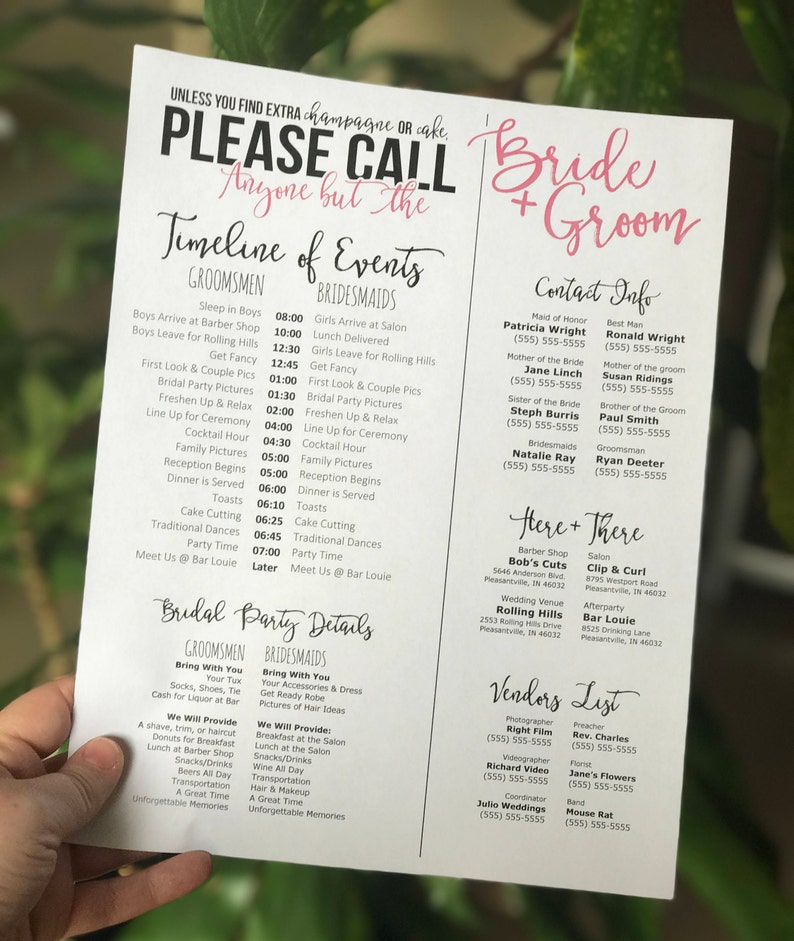 UNLESS YOU FIND EXTRA champagne OR cake,
PLEASE CALL
Anyone but the
Bride
+ Groom
Timeline of Events
GROOMSMEN BRIDESMAIDS
Sleep in Boys 08:00 Girls Arrive at Salon
Boys Arrive at Barber Shop 10:00 Lunch Delivered
Boys Leave for Rolling Hills 12:30 Girls Leave for Rolling Hills
Get Fancy 12:45 Get Fancy
First Look & Couple Pics 01:00 First Look & Couple Pics
Bridal Party Pictures 01:30 Bridal Party Pictures
Freshen Up & Relax 02:00 Freshen Up & Relax
Line Up for Ceremony 04:00 Line Up for Ceremony
Cocktail Hour 04:30 Cocktail Hour
Family Pictures 05:00 Family Pictures
Reception Begins 05:00 Reception Begins
Dinner is Served 06:00 Dinner is Served
Toasts 06:10 Toasts
Cake Cutting 06:25 Cake Cutting
Traditional Dances 06:45 Traditional Dances
Party Time 07:00 Party Time
Meet Us @ Bar Louie Later Meet Us @ Bar Louie
Bridal Party Details
GROOMSMEN
Bring With You
Your Tux
Socks, Shoes, Tie
Cash for Liquor at Bar
We Will Provide
A shave, trim, or haircut
Donuts for Breakfast
Lunch at Barber Shop
Snacks/Drinks
Beers All Day
Transportation
A Great Time
Unforgettable Memories
BRIDESMAIDS
Bring With You
Your Accessories & Dress
Get Ready Robe
Pictures of Hair Ideas
We Will Provide:
Breakfast at the Salon
Lunch at the Salon
Snacks/Drinks
Wine All Day
Transportation
Hair & Makeup
A Great Time
Unforgettable Memories
Contact Info
Maid of Honor
Patricia Wright
(555) 555-5555
Best Man
Ronald Wright
(555) 555-5555
Mother of the Bride
Jane Linch
(555) 555-5555
Mother of the groom
Susan Ridings
(555) 555-5555
Sister of the Bride
Steph Burris
(555) 555-5555
Brother of the Groom
Paul Smith
(555) 555-5555
Bridesmaids
Natalie Ray
(555) 555-5555
Groomsman
Ryan Deeter
(555) 555-5555
Here + There
Barber Shop
Bob's Cuts
5646 Anderson Blvd.
Pleasantville, IN 46032
Salon
Clip & Curl
8795 Westport Road
Pleasantville, IN 46032
Wedding Venue
Rolling Hills
2553 Rolling Hills Drive
Pleasantville, IN 46032
Afterparty
Bar Louie
8525 Drinking Lane
Pleasantville, IN 46032
Vendors List
Photographer
Right Film
(555) 555-5555
Preacher
Rev. Charles
(555) 555-5555
Videographer
Richard Video
(555) 555-5555
Florist
Jane's Flowers
(555) 555-5555
Coordinator
Julio Weddings
(555) 555-5555
Band
Mouse Rat
(555) 555-5555